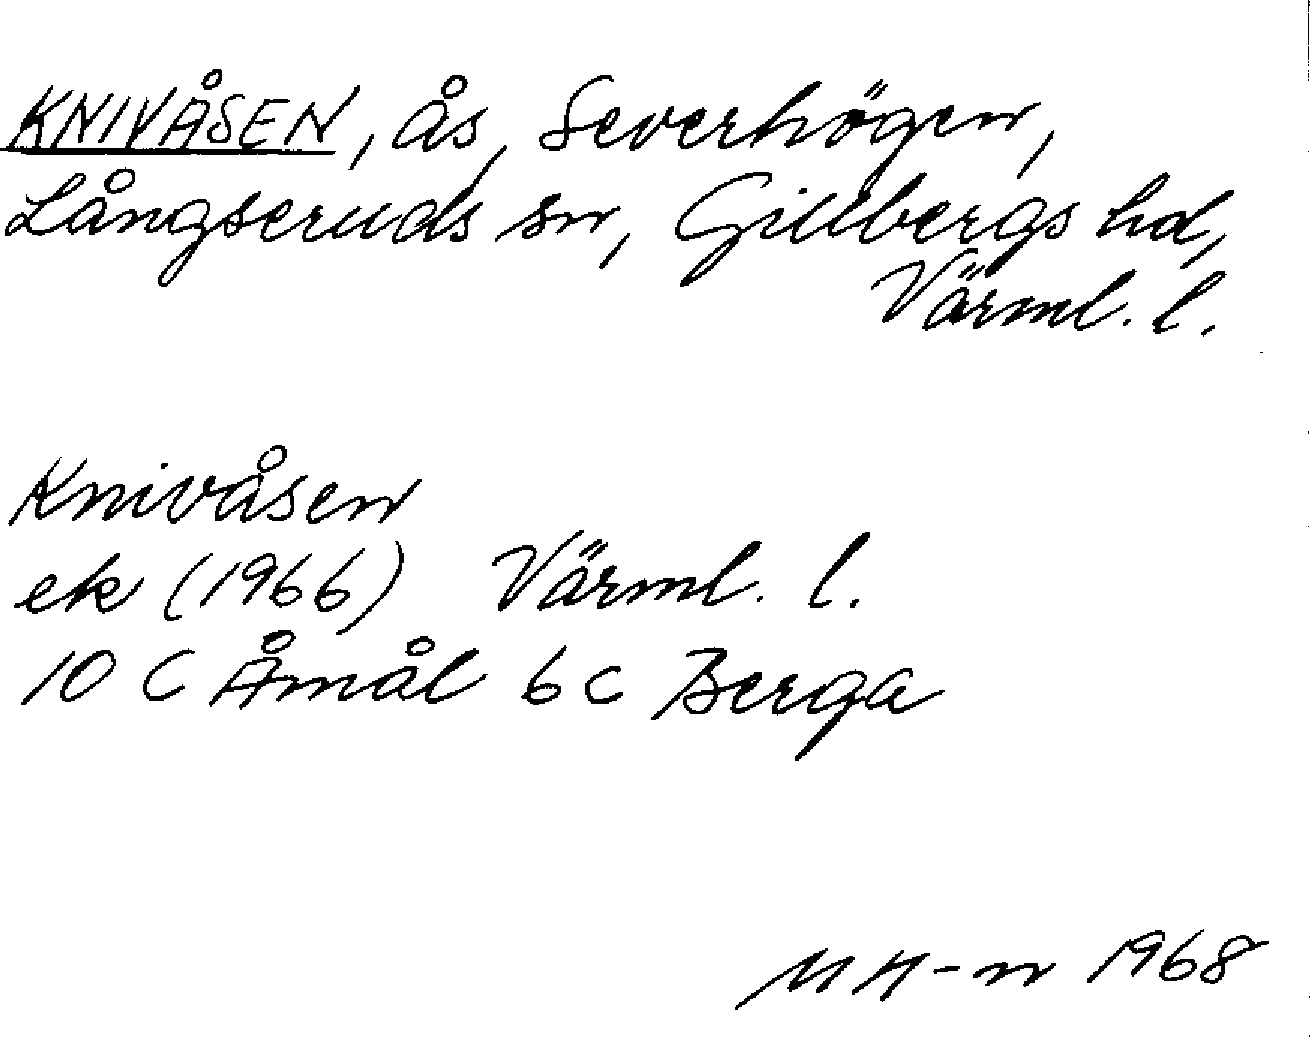 KNIVÅSEN, ås, Severhögen,
Långseruds sn, Gillbergs hd,
Värml. l.
Knivåsen
ek (1966) Värml. l.
10 C Åmål 6c Berga
MH-n 1968